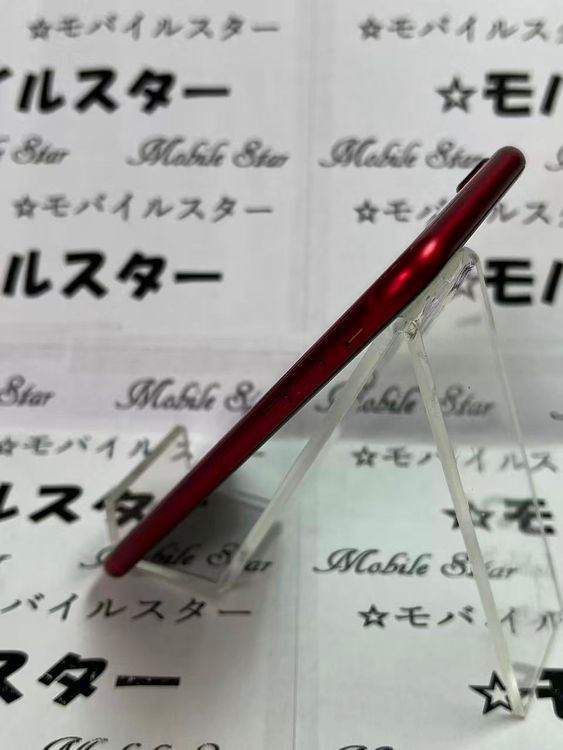 ☆モバイルスター ☆モバイルス
イルスター ☆モバ
Star Mobile Star Mobile Star
☆モバイルスター ☆モバイルス
ルスター ☆モバ
Star Mobile S Star
☆モバイル ☆モバイルス
ルスター ☆モ
Mobile Star
バイルスター ☆モバイル
スター ☆モ
Mobile Star